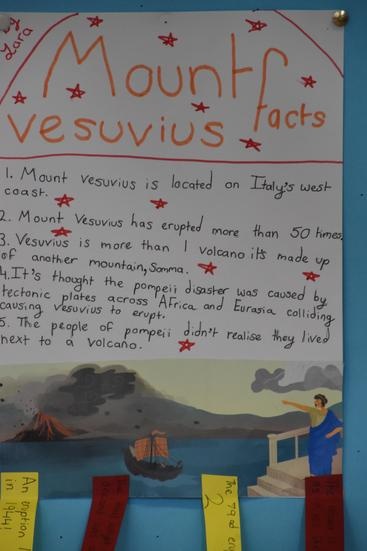 by
Zara
Mount
vesuvius facts
1. Mount vesuvius is located on Italy's west
coast.
2. Mount Vesuvius has erupted more than 50 times.
3. Vesuvius is more than 1 volcano it's made up
of another mountain, Somma.
4. It's thought the pompeii disaster was caused by
tectonic plates across Africa and Eurasia colliding
causing vesuvius to erupt.
5. The people of pompeii didn't realise they lived
next to a volcano.
An eruption
in 1944!
The 79ad